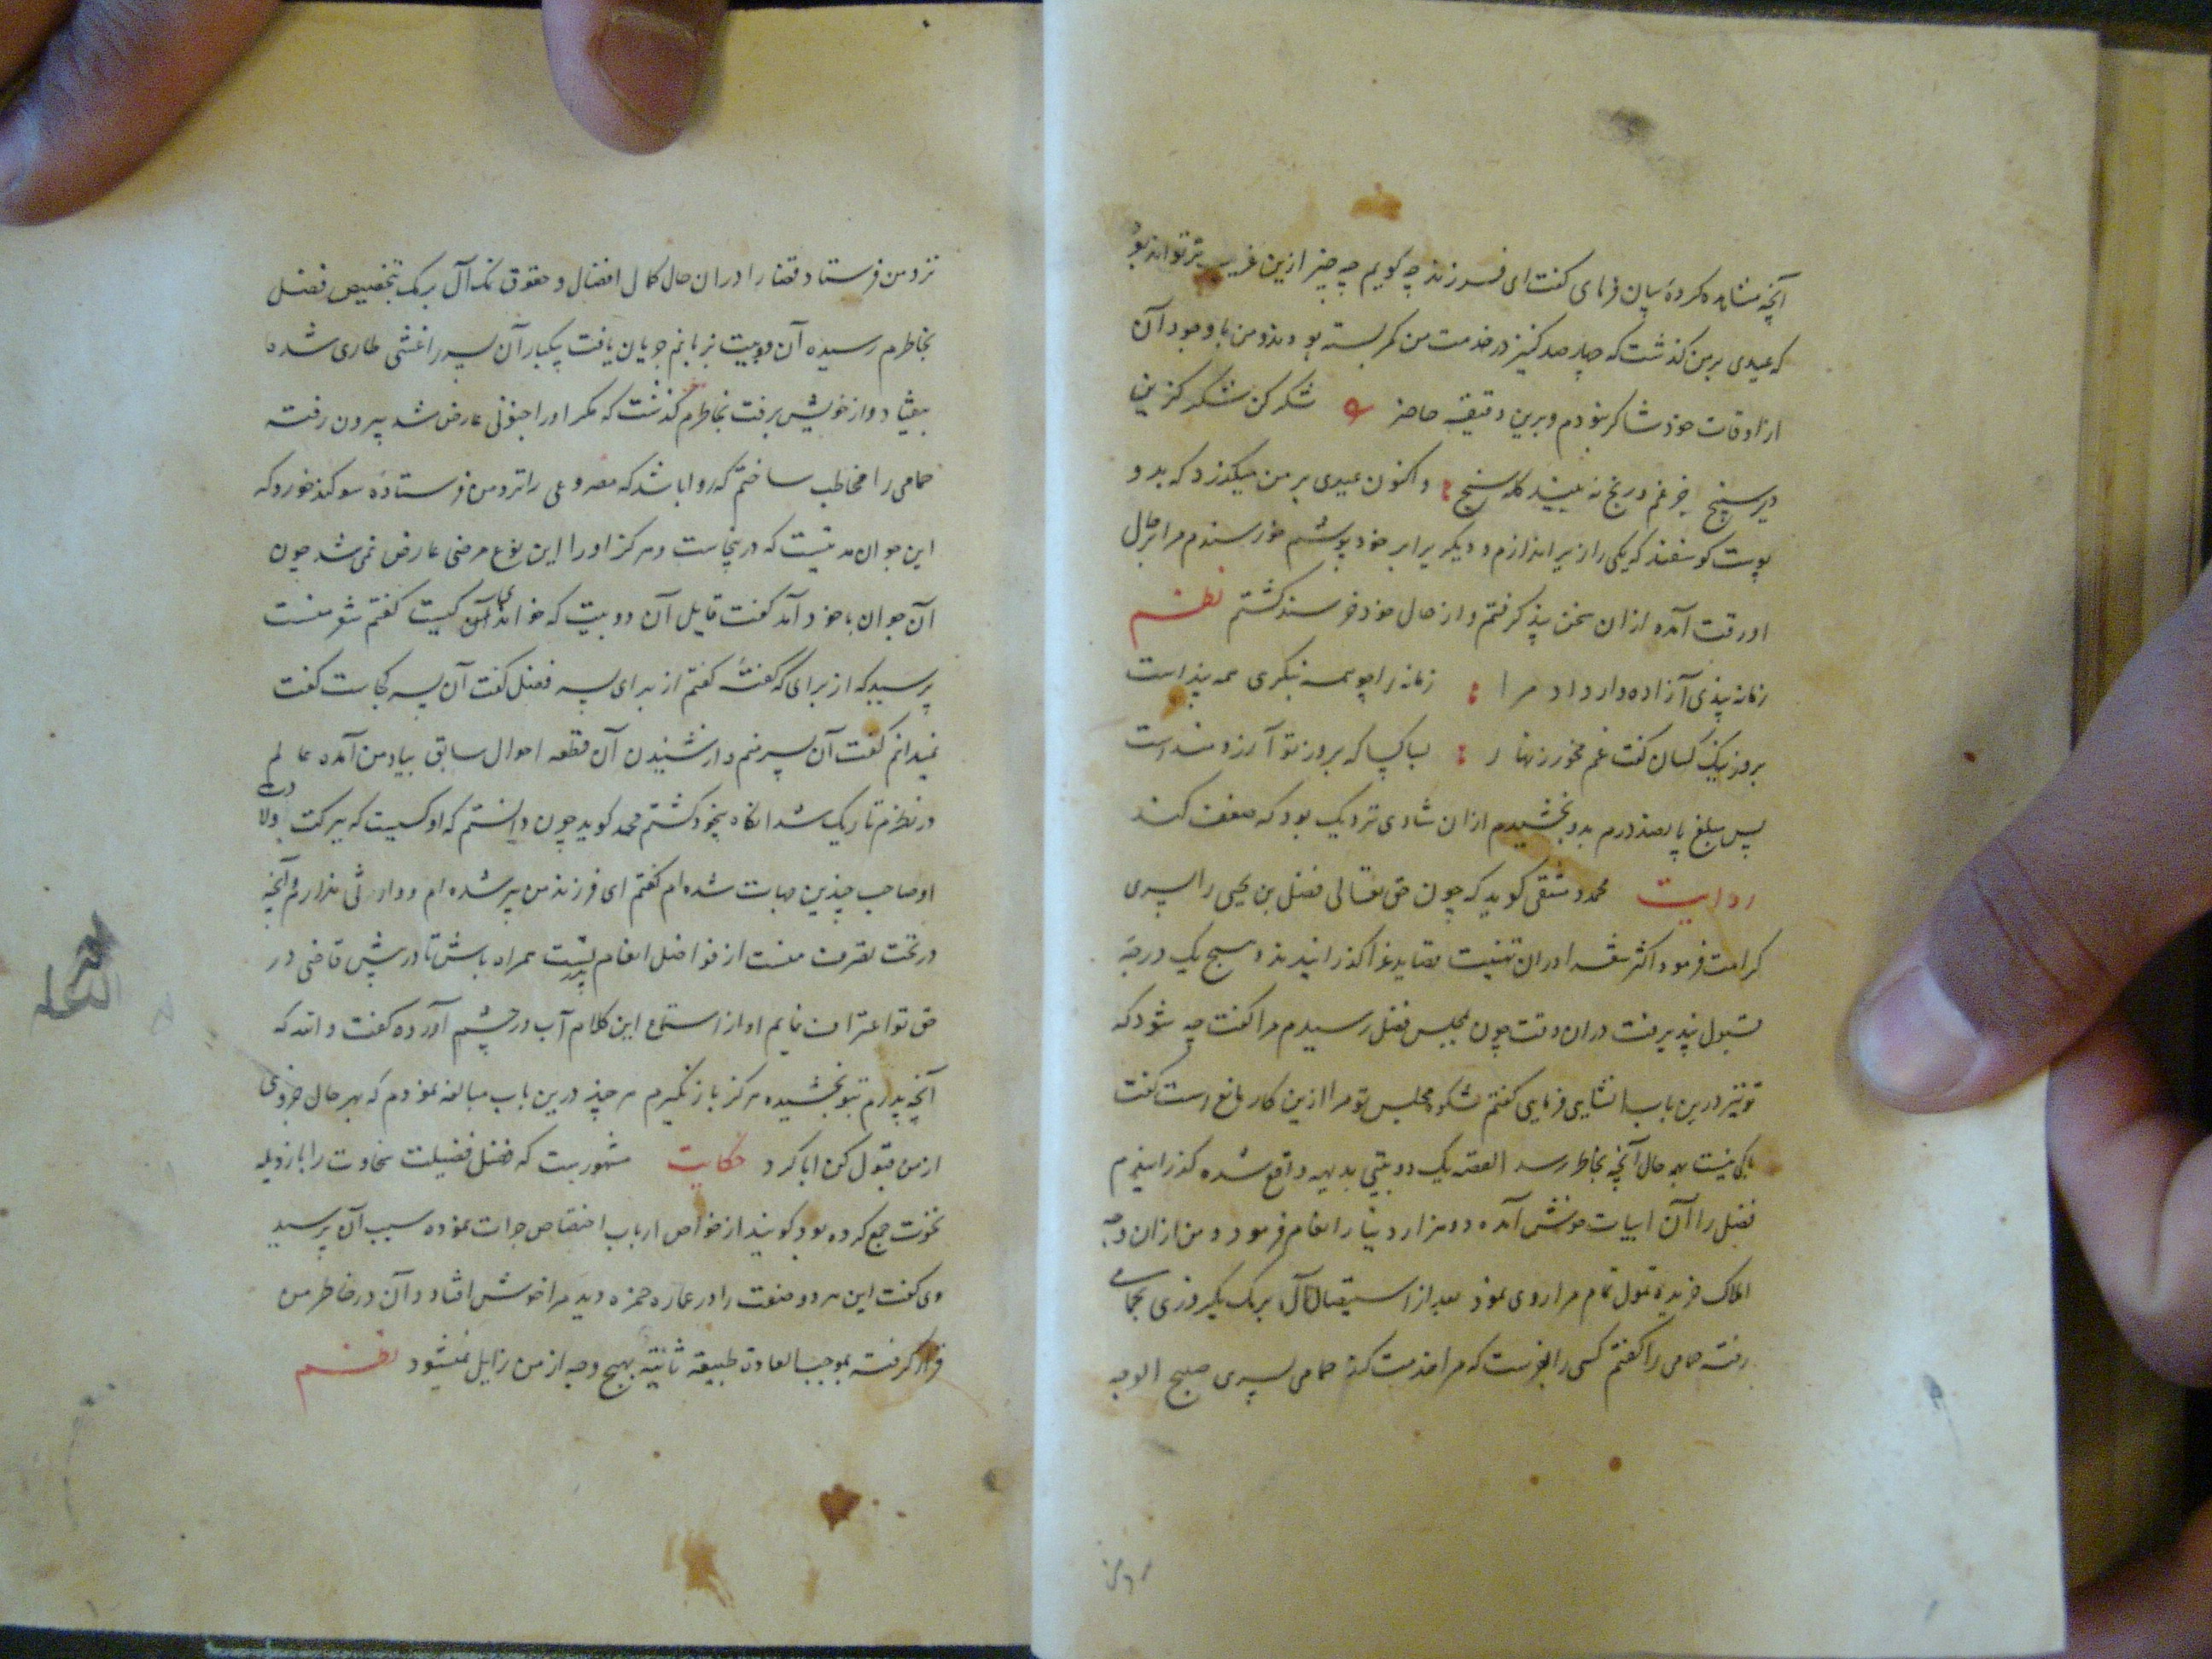 آنچه مشاهده کردهٔ بیان فرمای گفت ای فرزند چه گویم چه چیز ازین غریب‌تر تواند بود
که عیدی بر من گذشت که چهار صد کنیز در خدمت من کمر بسته بودند و من با وجود آن
از اوقات خود شاکر نبودم و برین دقیقه حاضر شکر کن شکر کزین
دیر سپنج جز غم و رنج نه بیند کله سنج و اکنون عیدی بر من میگذرد که بدو
پوست گوسفند که یکی را زیر اندازم و دیگر برابر خود پوشم خورسندم مرا بر حال
او رقت آمده از ان سخن پند گرفتم و از حال خود خرسند گشتم نظم
زمانه پندی آزاده وار داد مرا زمانه را چو همه بنگری همه پند است
بروز نیک کسان گفت غم مخور زنهار بسا کسا که بروز تو آرزومند است
پس مبلغ پانصد درم بدو بخشیدم از ان شادی نزدیک بود که ضعف کند
روایت محمد دمشقی گوید که چون حق تعالی فضل بن یحیی را پسری
کرامت فرمود اکثر شعرا دران تهنیت قصاید غرا گذرانیدند و هیچ یک درجهٔ
قبول نپذیرفت دران وقت چون بمجلس فضل رسیدم مرا گفت چه شود که
تو نیز درین باب انشایی فرمایی گفتم شکوه مجلس تو مرا ازین کار مانع است گفت
باکی نیست بهر حال آنچه بخاطر رسد القصه یک دو بیتی بدیهه واقع شده گذرانیدم
فضل را آن ابیات خوش آمده دو هزار دینار انعام فرمود و من ازان وجه
املاک خریده تمول تمام مرا روی نمود بعد از استیصال آل برمک یکروزی بحمامی
رفته حمامی را گفتم کسی را بفرست که مرا خدمت کند حمامی پسری صبیح الوجه
نزد من فرستاد قضا را دران حال کمال افضال و حقوق نمک آل برمک بتخصیص فضل
بخاطرم رسیده آن دو بیت بزبانم جریان یافت یکبار آن پسر را غشی طاری شده
بیفتاد و از خویش برفت بخاطرم گذشت که مگر او را جنونی عارض شد بیرون رفته
حمامی را مخاطب ساختم که روا باشد که مصروعی را نزد من فرستاده سوگند خورد که
این جوان مدتیست که درینجاست و هرگز او را این نوع مرضی عارض نمی شد چون
آن جوان با خود آمد گفت قایل آن دو بیت که خواندی آن کیست گفتم شعر منست
پرسید که از برای که گفتهٔ گفتم از برای پسر فضل گفت آن پسر کجاست گفت
نمیدانم گفت آن پسر منم و از شنیدن آن قطعه احوال سابق بیاد من آمده عالم
در نظرم تاریک شد انگاه بیخود گشتم محمد گوید چون دانستم که او کسیست که ببرکت ولادت
او صاحب چندین جهات شده ام گفتم ای فرزند من پیر شده ام و وارثی ندارم و آنچه
در تحت تصرف منست از فواضل انعام پدرت همراه باش تا در پیش قاضی در
حق تو اعتراف نمایم او از استماع این کلام آب در چشم آورده گفت والله که
آنچه پدرم بتو بخشیده هرگز باز نگیرم هر چند درین باب مبالغه نمودم که بهر حال جزوی
از من قبول کن ابا کرد حکایت مشهورست که فضل فضیلت سخاوت را با رذیله
نخوت جمع کرده بود گویند از خواص ارباب اختصاص جرات نموده سبب آن پرسید
وی گفت این هر دو صفت را در عماره حمزه دید مرا خوش افتاد و آن در خاطر من
قرار گرفته بموجب العادت طبیعة ثانیه بهیچ وجه از من زایل نمیشود نظم